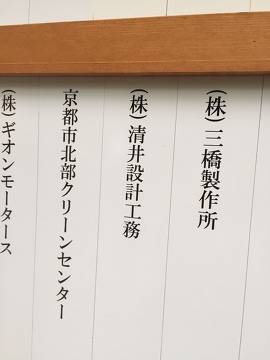 (株)三橋製作所
(株)清井設計工務
京都市北部クリーンセンター
(株)ギオンモータース